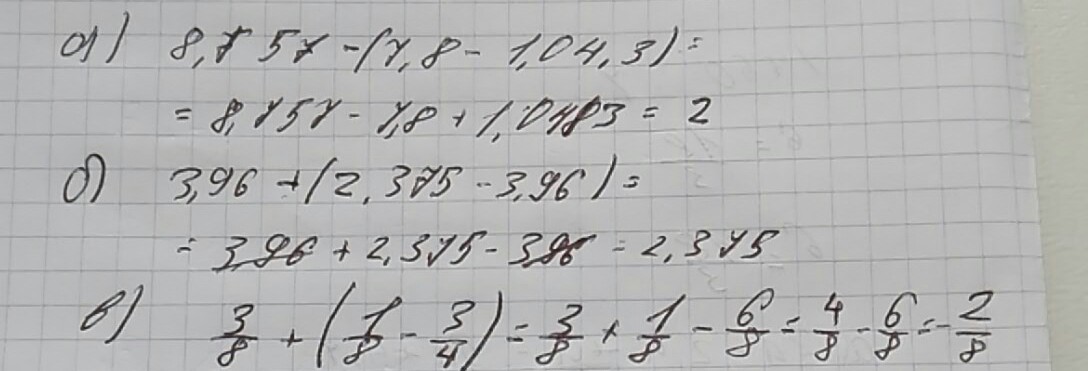 а) 8,757 - (7,8 - 1,04,3) =
= 8,757 - 7,8 + 1,043 = 2
б) 3,96 + (2,375 - 3,96) =
= 3,96 + 2,375 - 3,96 = 2,375
в) 3/8 + (1/8 - 3/4) = 3/8 + 1/8 - 6/8 = 4/8 - 6/8 = -2/8